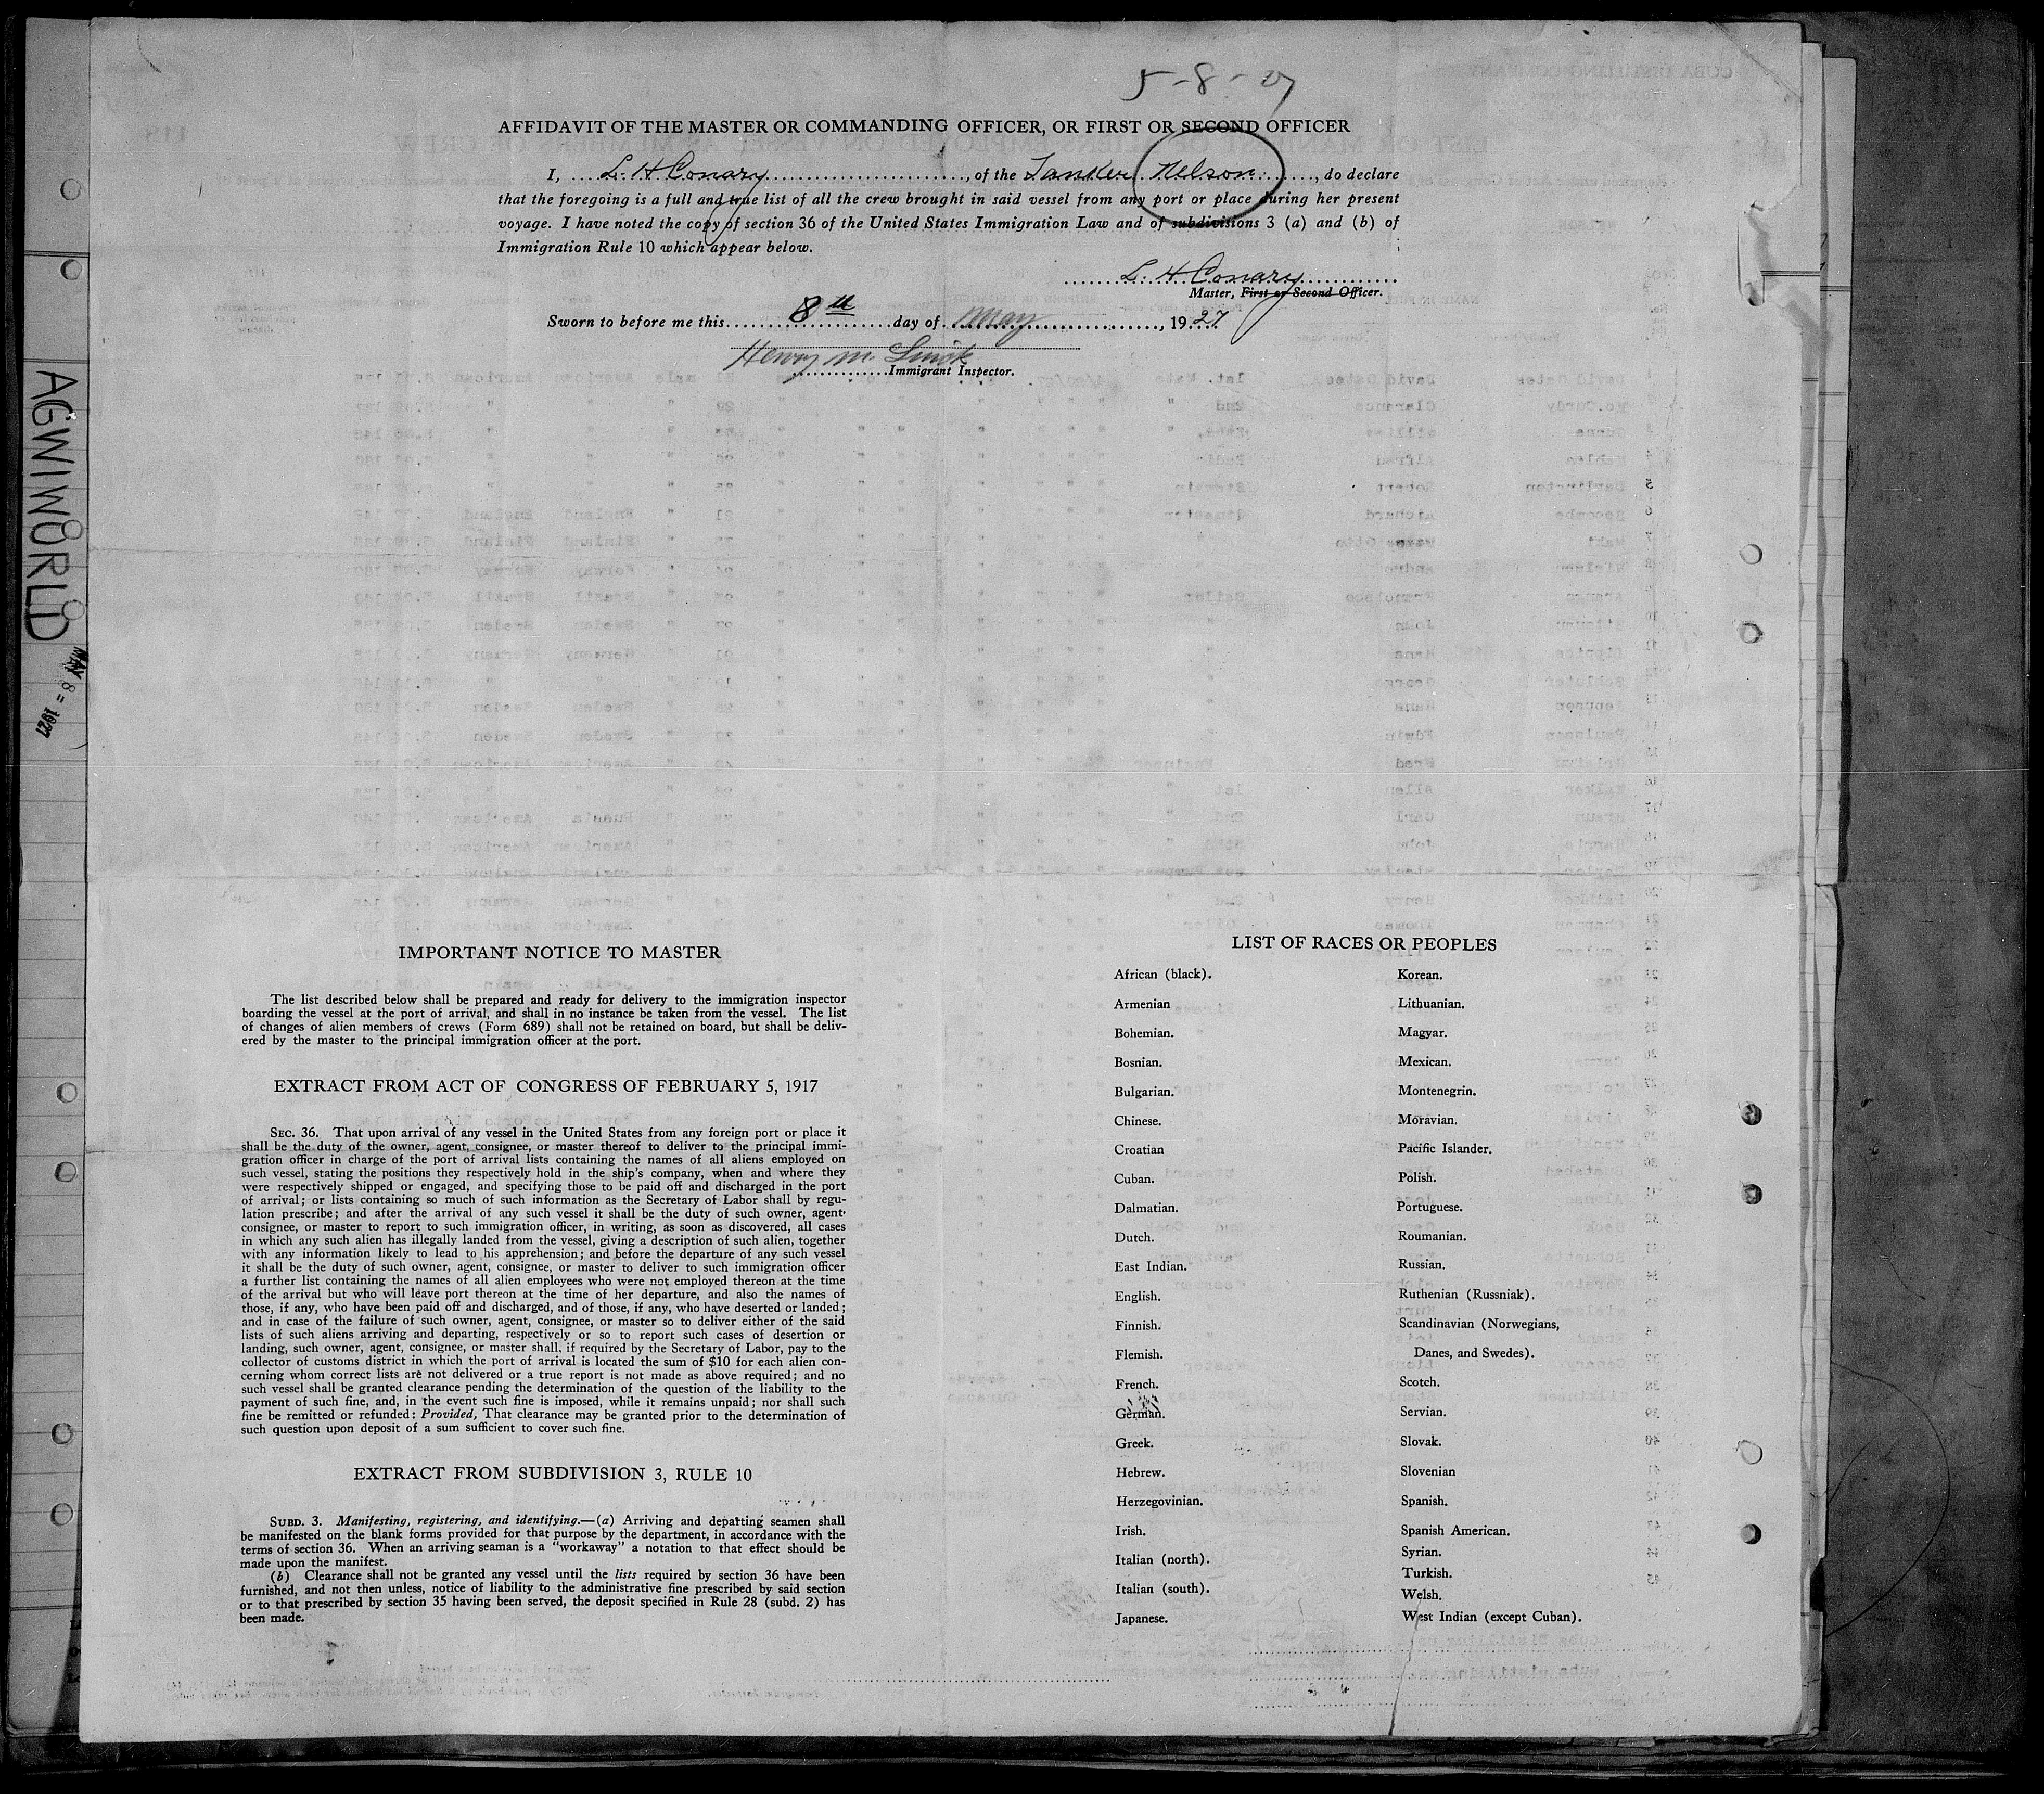 5-8-27
AFFIDAVIT OF THE MASTER OR COMMANDING OFFICER, OR FIRST OR SECOND OFFICER
I, L. H Conary, of the Tanker Nelson, do declare
that the foregoing is a full and true list of all the crew brought in said vessel from any port or place during her present
voyage. I have noted the copy of section 36 of the United States Immigration Law and of subdivisions 3 (a) and (b) of
Immigration Rule 10 which appear below.
L. H Conary
Master, First or Second Officer.
Sworn to before me this 8th day of May, 1927
Henry M.
Immigrant Inspector.
AGWIWORLD
MAY 8 = 1927
IMPORTANT NOTICE TO MASTER
The list described below shall be prepared and ready for delivery to the immigration inspector
boarding the vessel at the port of arrival, and shall in no instance be taken from the vessel. The list
of changes of alien members of crews (Form 689) shall not be retained on board, but shall be deliv-
ered by the master to the principal immigration officer at the port.
EXTRACT FROM ACT OF CONGRESS OF FEBRUARY 5, 1917
SEC. 36. That upon arrival of any vessel in the United States from any foreign port or place it
shall be the duty of the owner, agent, consignee, or master thereof to deliver to the principal immi-
gration officer in charge of the port of arrival lists containing the names of all aliens employed on
such vessel, stating the positions they respectively hold in the ship's company, when and where they
were respectively shipped or engaged, and specifying those to be paid off and discharged in the port
of arrival; or lists containing so much of such information as the Secretary of Labor shall by regu-
lation prescribe; and after the arrival of any such vessel it shall be the duty of such owner, agent,
consignee, or master to report to such immigration officer, in writing, as soon as discovered, all cases
in which any such alien has illegally landed from the vessel, giving a description of such alien, together
with any information likely to lead to his apprehension; and before the departure of any such vessel
it shall be the duty of such owner, agent, consignee, or master to deliver to such immigration officer
a further list containing the names of all alien employees who were not employed thereon at the time
of the arrival but who will leave port thereon at the time of her departure, and also the names of
those, if any, who have been paid off and discharged, and of those, if any, who have deserted or landed;
and in case of the failure of such owner, agent, consignee, or master so to deliver either of the said
lists of such aliens arriving and departing, respectively or so to report such cases of desertion or
landing, such owner, agent, consignee, or master shall, if required by the Secretary of Labor, pay to the
collector of customs district in which the port of arrival is located the sum of $10 for each alien con-
cerning whom correct lists are not delivered or a true report is not made as above required; and no
such vessel shall be granted clearance pending the determination of the question of the liability to the
payment of such fine, and, in the event such fine is imposed, while it remains unpaid; nor shall such
fine be remitted or refunded: Provided, That clearance may be granted prior to the determination of
such question upon deposit of a sum sufficient to cover such fine.
EXTRACT FROM SUBDIVISION 3, RULE 10
SUBD. 3. Manifesting, registering, and identifying.—(a) Arriving and departing seamen shall
be manifested on the blank forms provided for that purpose by the department, in accordance with the
terms of section 36. When an arriving seaman is a "workaway" a notation to that effect should be
made upon the manifest.
(b) Clearance shall not be granted any vessel until the lists required by section 36 have been
furnished, and not then unless, notice of liability to the administrative fine prescribed by said section
or to that prescribed by section 35 having been served, the deposit specified in Rule 28 (subd. 2) has
been made.
LIST OF RACES OR PEOPLES
African (black).
Armenian
Bohemian.
Bosnian.
Bulgarian.
Chinese.
Croatian
Cuban.
Dalmatian.
Dutch.
East Indian.
English.
Finnish.
Flemish.
French.
German.
Greek.
Hebrew.
Herzegovinian.
Irish.
Italian (north).
Italian (south).
Japanese.
Korean.
Lithuanian.
Magyar.
Mexican.
Montenegrin.
Moravian.
Pacific Islander.
Polish.
Portuguese.
Roumanian.
Russian.
Ruthenian (Russniak).
Scandinavian (Norwegians,
Danes, and Swedes).
Scotch.
Servian.
Slovak.
Slovenian
Spanish.
Spanish American.
Syrian.
Turkish.
Welsh.
West Indian (except Cuban).